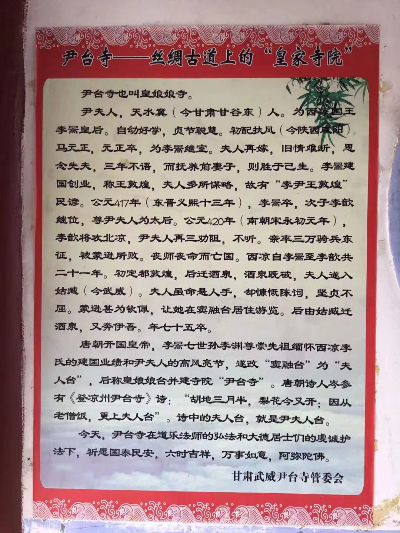 尹台寺——丝绸古道上的“皇家寺院”
尹台寺也叫皇娘娘寺。
尹夫人，天水冀（今甘肃甘谷东）人。为西凉国王
李暠皇后。自幼好学，贞节聪慧。初配扶风（今陕西咸阳）
马元正，元正卒，为李暠继室。夫人再嫁，旧情难断，思
念先夫，三年不语，而抚养前妻子，则胜于己生。李暠建
国创业，称王敦煌，夫人多所谋略，故有“李尹王敦煌”
民谚。公元417年（东晋义熙十三年），李暠卒，次子李歆
继位，尊尹夫人为太后。公元420年（南朝宋永初元年），
李歆将攻北凉，尹夫人再三劝阻，不听。亲率三万骑兵东
征，被蒙逊所败。丧师丧命而亡国。西凉自李暠至李歆共
二十一年。初定都敦煌，后迁酒泉，酒泉既破，夫人遂入
姑臧（今武威）。夫人虽命悬人手，却慷慨陈词，坚贞不
屈。蒙逊甚为钦佩，让她在窦融台居住游览。后由姑臧迁
酒泉，又奔伊吾。年七十五卒。
唐朝开国皇帝，李暠七世孙李渊尊崇先祖缅怀西凉李
氏的建国业绩和尹夫人的高风亮节，遂改“窦融台”为“夫
人台”，后称皇娘娘台并建寺院“尹台寺”。唐朝诗人岑参
有《登凉州尹台寺》诗：“胡地三月半，梨花今又开；因从
老僧饭，更上夫人台”。诗中的夫人台，就是尹夫人台。
今天，尹台寺在道乐法师的弘法和大德居士们的虔诚护
法下，祈愿国泰民安，六时吉祥，万事如意，阿弥陀佛。
甘肃武威尹台寺管委会